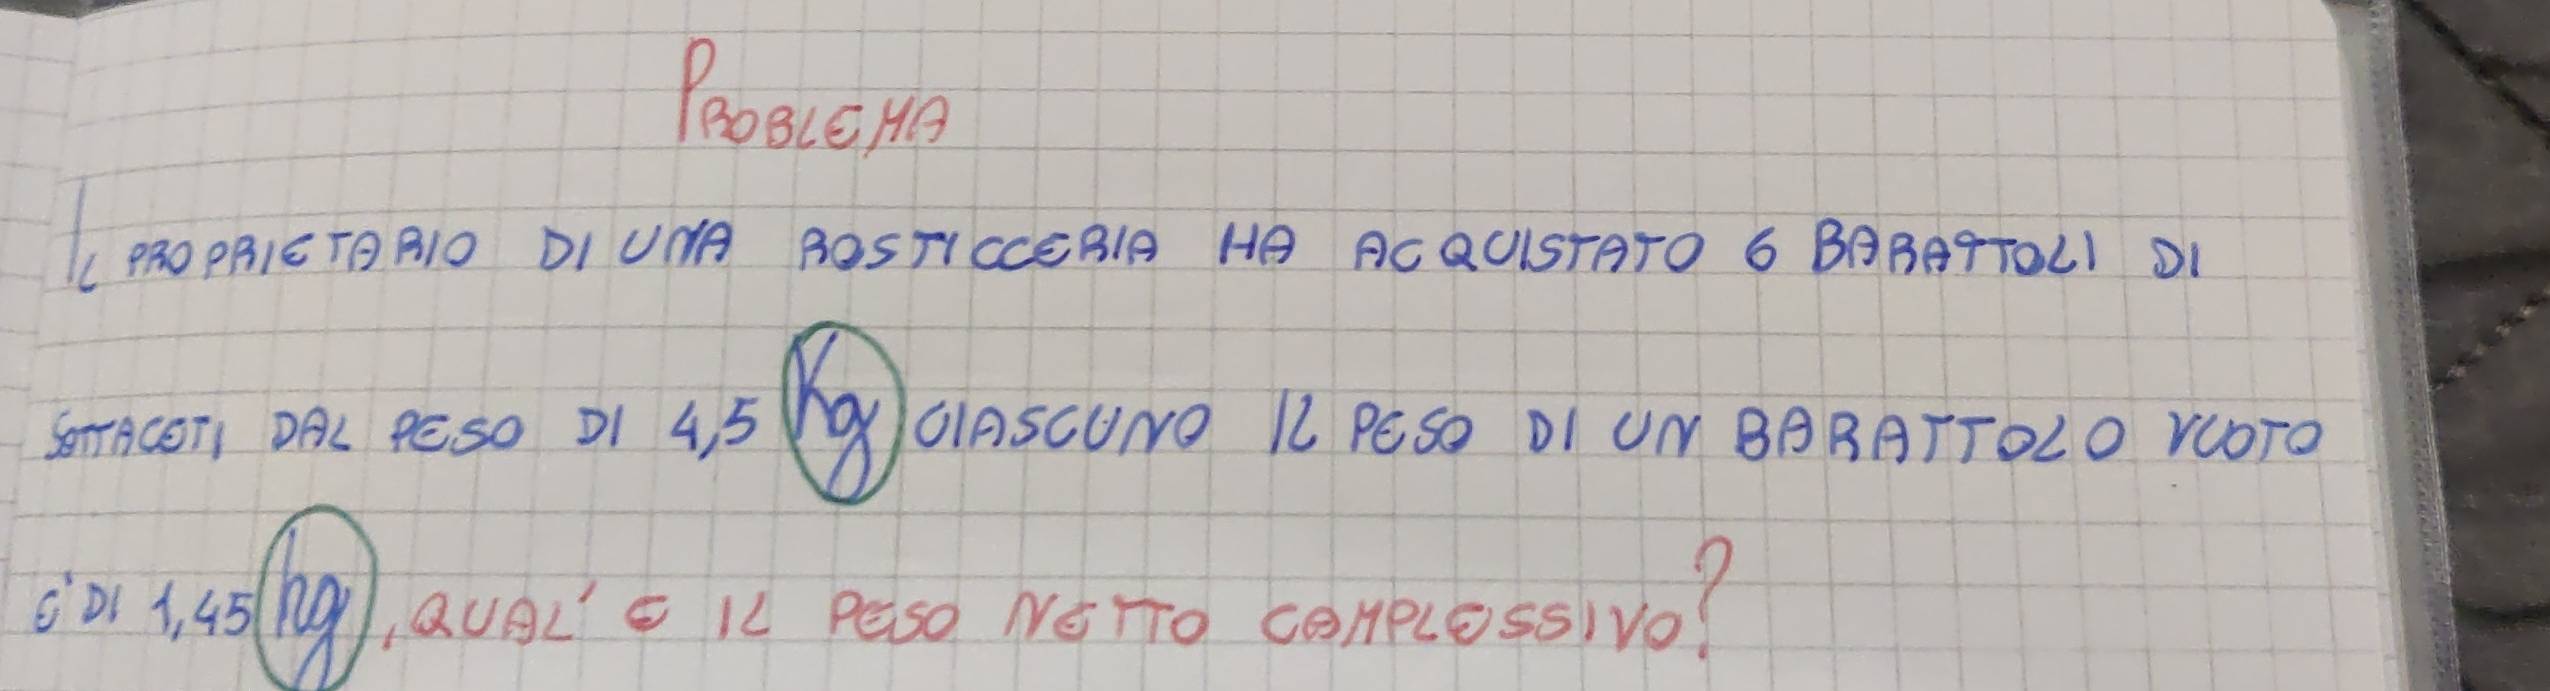 PROBLEMA
IL PROPRIETARIO DI UNA ROSTICCERIA HA ACQUISTATO 6 BARATTOLI DI
SOTTACETI DAL PESO DI 4,5 Kg CIASCUNO IL PESO DI UN BARATTOLO VUOTO
E' DI 1,45 hg, QUAL' E IL PESO NETTO COMPLESSIVO?